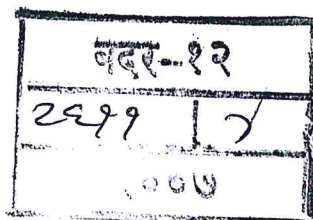 बदर-१२
२६११ | ४
००७